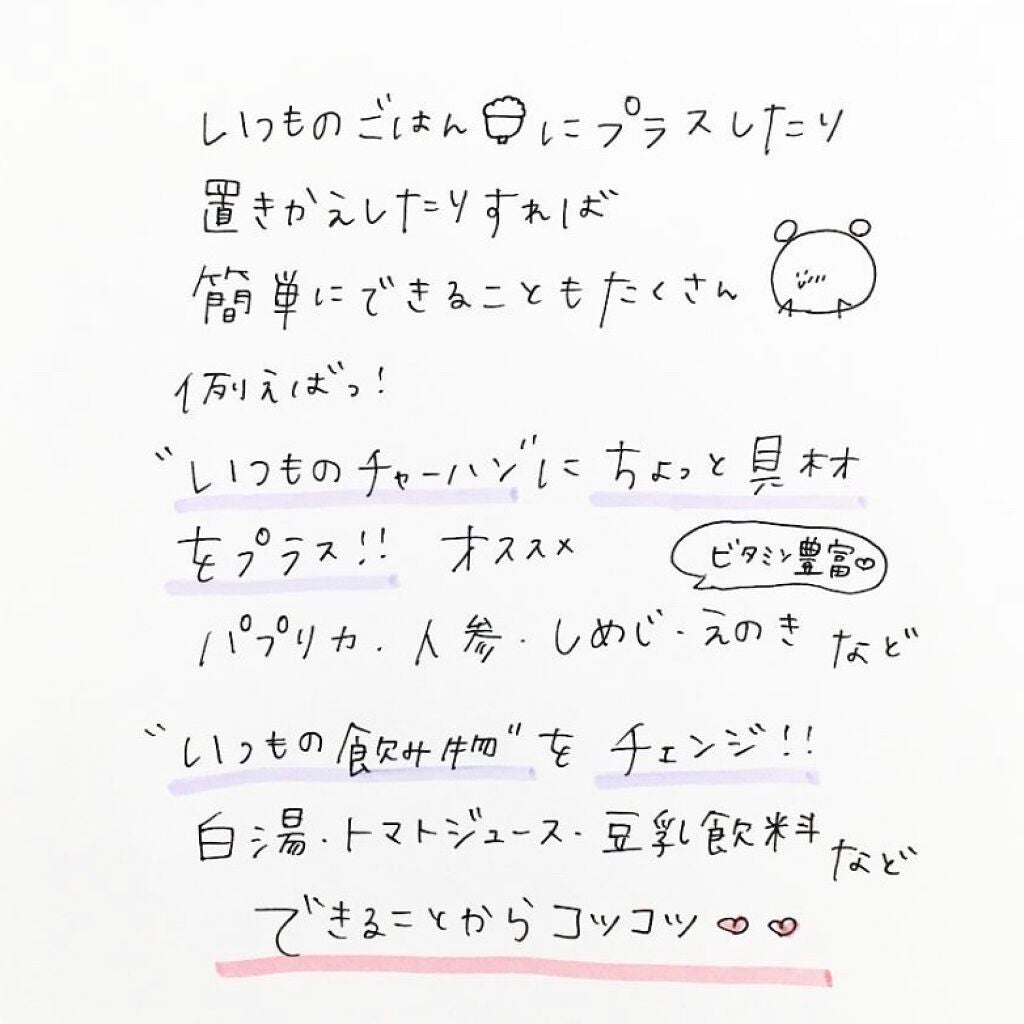 いつものごはん🍚にプラスしたり
置きかえしたりすれば
簡単にできることもたくさん
例えばっ!
"いつものチャーハン"にちょっと具材
をプラス!! オススメ
ビタミン豊富♡
パプリカ・人参・しめじ・えのき など
"いつもの飲み物"を チェンジ!!
白湯・トマトジュース・豆乳飲料 など
できることからコツコツ♡♡